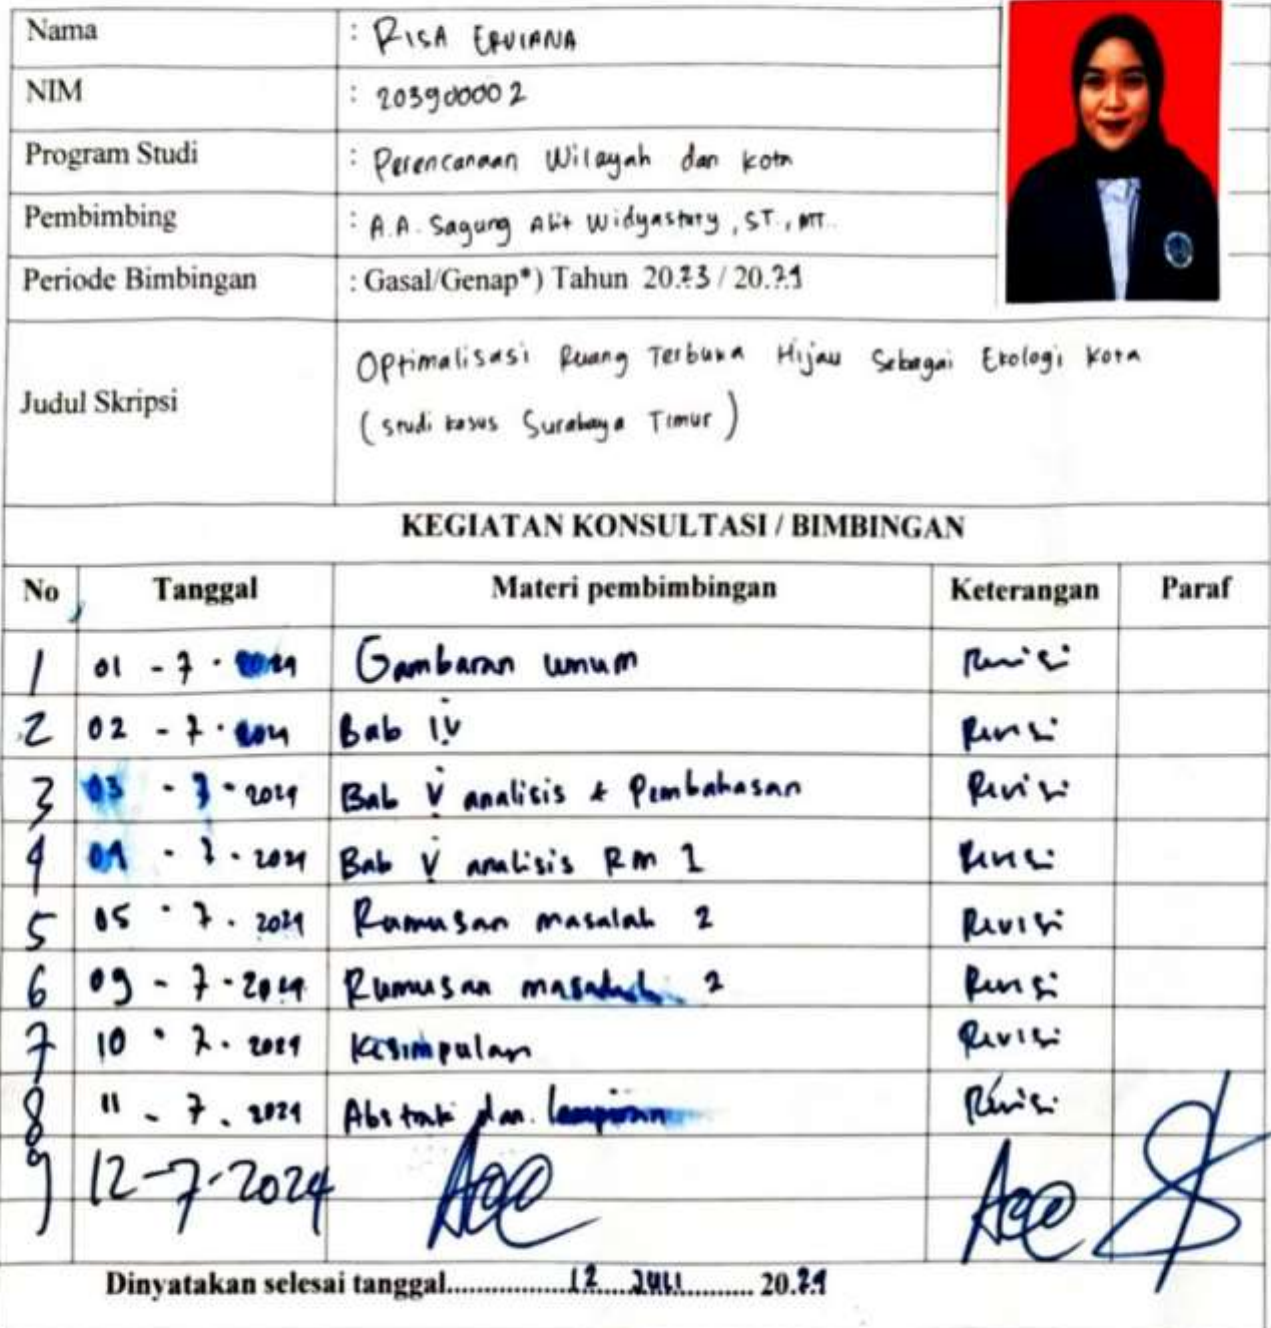 Nama : RISA ERVIANA
NIM : 203900002
Program Studi : Perencanaan Wilayah dan Kota
Pembimbing : A.A. Sagung Alit Widyastuty, ST., MT.
Periode Bimbingan : Gasal/Genap*) Tahun 20.23 / 20.24
Judul Skripsi
Optimalisasi Ruang Terbuka Hijau Sebagai Ekologi Kota
(studi kasus Surabaya Timur)
KEGIATAN KONSULTASI / BIMBINGAN
No Tanggal Materi pembimbing Keterangan Paraf
1 01 - 7 - 2024 Gambaran umum Revisi
2 02 - 7 - 2024 Bab IV Revisi
3 03 - 7 - 2024 Bab V analisis & Pembahasan Revisi
4 04 - 7 - 2024 Bab V analisis RM 1 Revisi
5 05 - 7 - 2024 Rumusan masalah 2 Revisi
6 09 - 7 - 2024 Rumusan masalah 2 Revisi
7 10 - 7 - 2024 Kesimpulan Revisi
8 11 - 7 - 2024 Abstrak dan lampiran Revisi
9 12-7-2024 Acc Acc
Dinyatakan selesai tanggal..................12....JULI............ 20.24